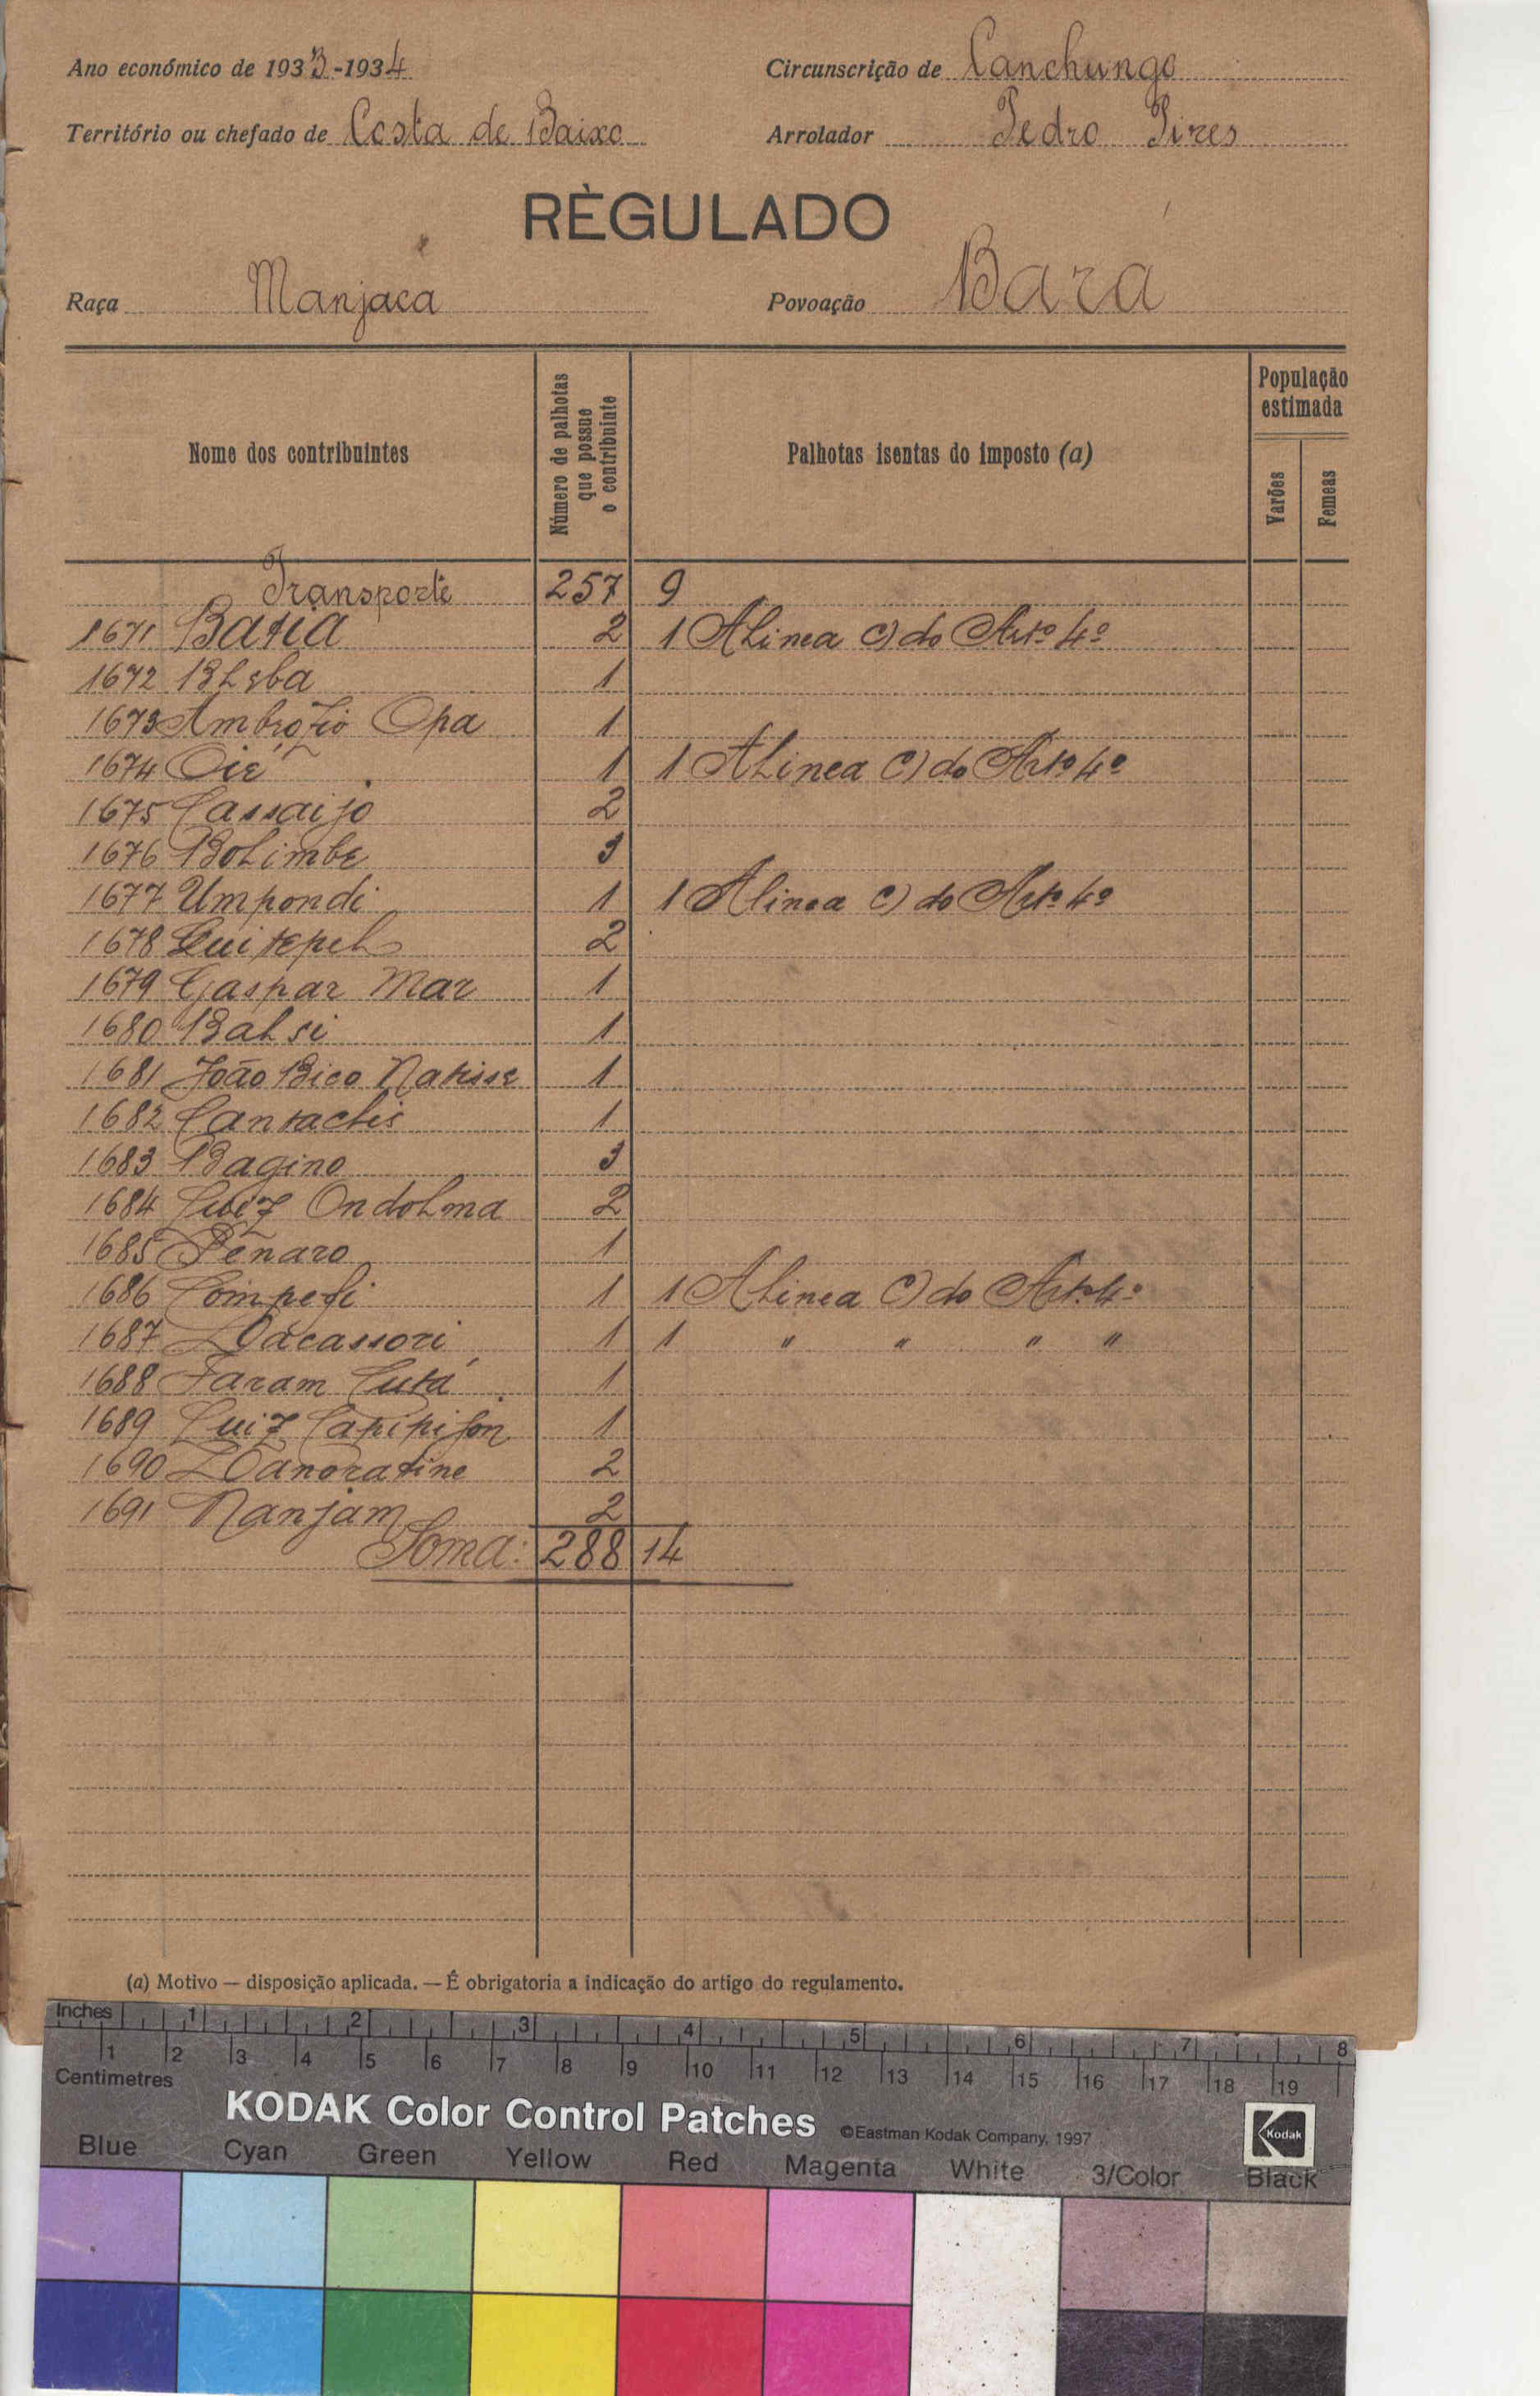 Ano económico de 1933-1934
Circunscrição de Canchungo
Território ou chefado de Costa de Baixo
Arrolador Pedro Pires
RÈGULADO
Raça Manjaca
Povoação Bará
Nome dos contribuintes
Número de palhotas que possue o contribuinte
Palhotas isentas do imposto (a)
População estimada
Varões
Femeas
Transporte 257 9
1671 Batia 2 1 Alinea c) do Artº 4º
1672 Bleba 1
1673 Ambrozio Opa 1
1674 Oié 1 1 Alinea c) do Artº 4º
1675 Cassaijo 2
1676 Bolimbe 3
1677 Umpondi 1 1 Alinea c) do Artº 4º
1678 Quitepel 2
1679 Gaspar Mar 1
1680 Balsi 1
1681 João Bico Natisse 1
1682 Cantachis 1
1683 Bagino 3
1684 Luiz Ondolma 2
1685 Penaro 1
1686 1 1 Alinea c) do Artº 4º
1687 Dacassori 1 1 " " " "
1688 Faram Cutá 1
1689 Luiz 1
1690 Danoratine 2
1691 Nanjam 2
Soma: 288 14
(a) Motivo — disposição aplicada. — É obrigatoria a indicação do artigo do regulamento.
Inches 1 2 3 4 5 6 7 8
1 2 3 4 5 6 7 8 9 10 11 12 13 14 15 16 17 18 19
Centimetres
KODAK Color Control Patches ©Eastman Kodak Company, 1997
Kodak
Blue Cyan Green Yellow Red Magenta White 3/Color Black